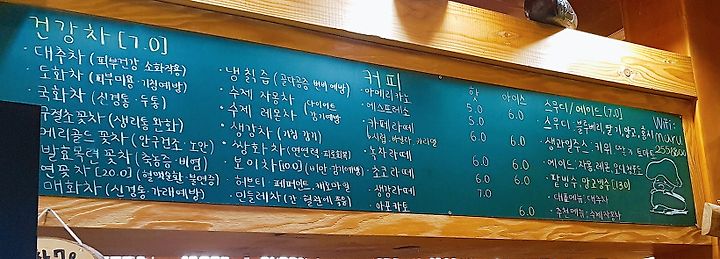 건강차 [7.0]
· 대추차 (피부건강 소화작용)
· 도화차 (피부미용 · 기침예방)
· 국화차 (신경통 · 두통)
구절초꽃차 (생리통완화)
메리골드 꽃차 (안구건조 · 노안)
발효목련꽃차 (축농증 · 비염)
연꽃차 [20.0] (혈액순환 · 불면증)
매화차 (신경통 · 가래예방)
· 냉칡즙 (골다공증 변비예방)
· 수제 자몽차 (다이어트
· 수제 레몬차 감기예방)
· 생강차 (기침 감기)
· 쌍화차 (면연력 · 피로회복)
· 보이차 [10.0] (비만 감기예방)
· 허브티 · 페퍼민트, 캐모마일
· 민들레차 (간 혈관에 좋음)
커피 핫 아이스
· 아메리카노 5.0 6.0
· 에스프레소 5.0
· 카페라떼 6.0 6.0
(시럽, 바닐라, 카라멜
· 녹차라떼 6.0
· 초코라떼 6.0 6.0
· 생강라떼 7.0
· 아포카토 6.0
스무디/에이드 [7.0]
· 스무디 : 블루베리, 딸기, 망고, 홍시
· 생과일쥬스 : 키위 딸기 토마토
· 에이드 : 자몽, 레몬,
· 팥빙수, 망고빙수 [13.0]
· 대표메뉴 : 대추차
· 추천메뉴 : 수제자몽차
WiFi:
maru